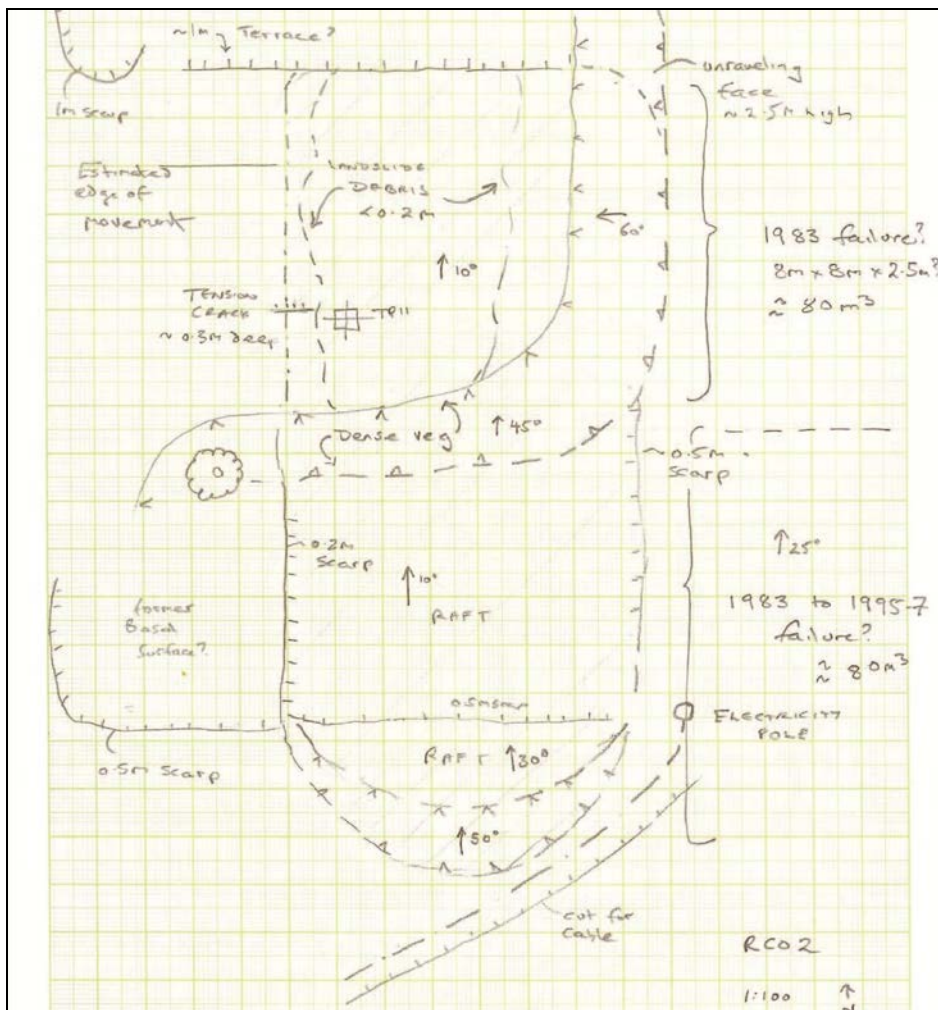 ~1m Terrace?
1m scarp
unraveling
face
~2.5m high
Estimated
edge of
movement
LANDSLIDE
DEBRIS
<0.2m
60°
10°
1983 failure?
8m x 8m x 2.5m?
≈ 80m³
TENSION
CRACK
~0.3m deep
TP11
Dense veg
45°
~0.5m
scarp
~0.2m
scarp
10°
RAFT
25°
former
Basal
surface?
1983 to 1995-7
failure?
≈ 80m³
0.5m scarp
ELECTRICITY
POLE
RAFT 30°
0.5m scarp
50°
cut for
cable
RC02
1:100